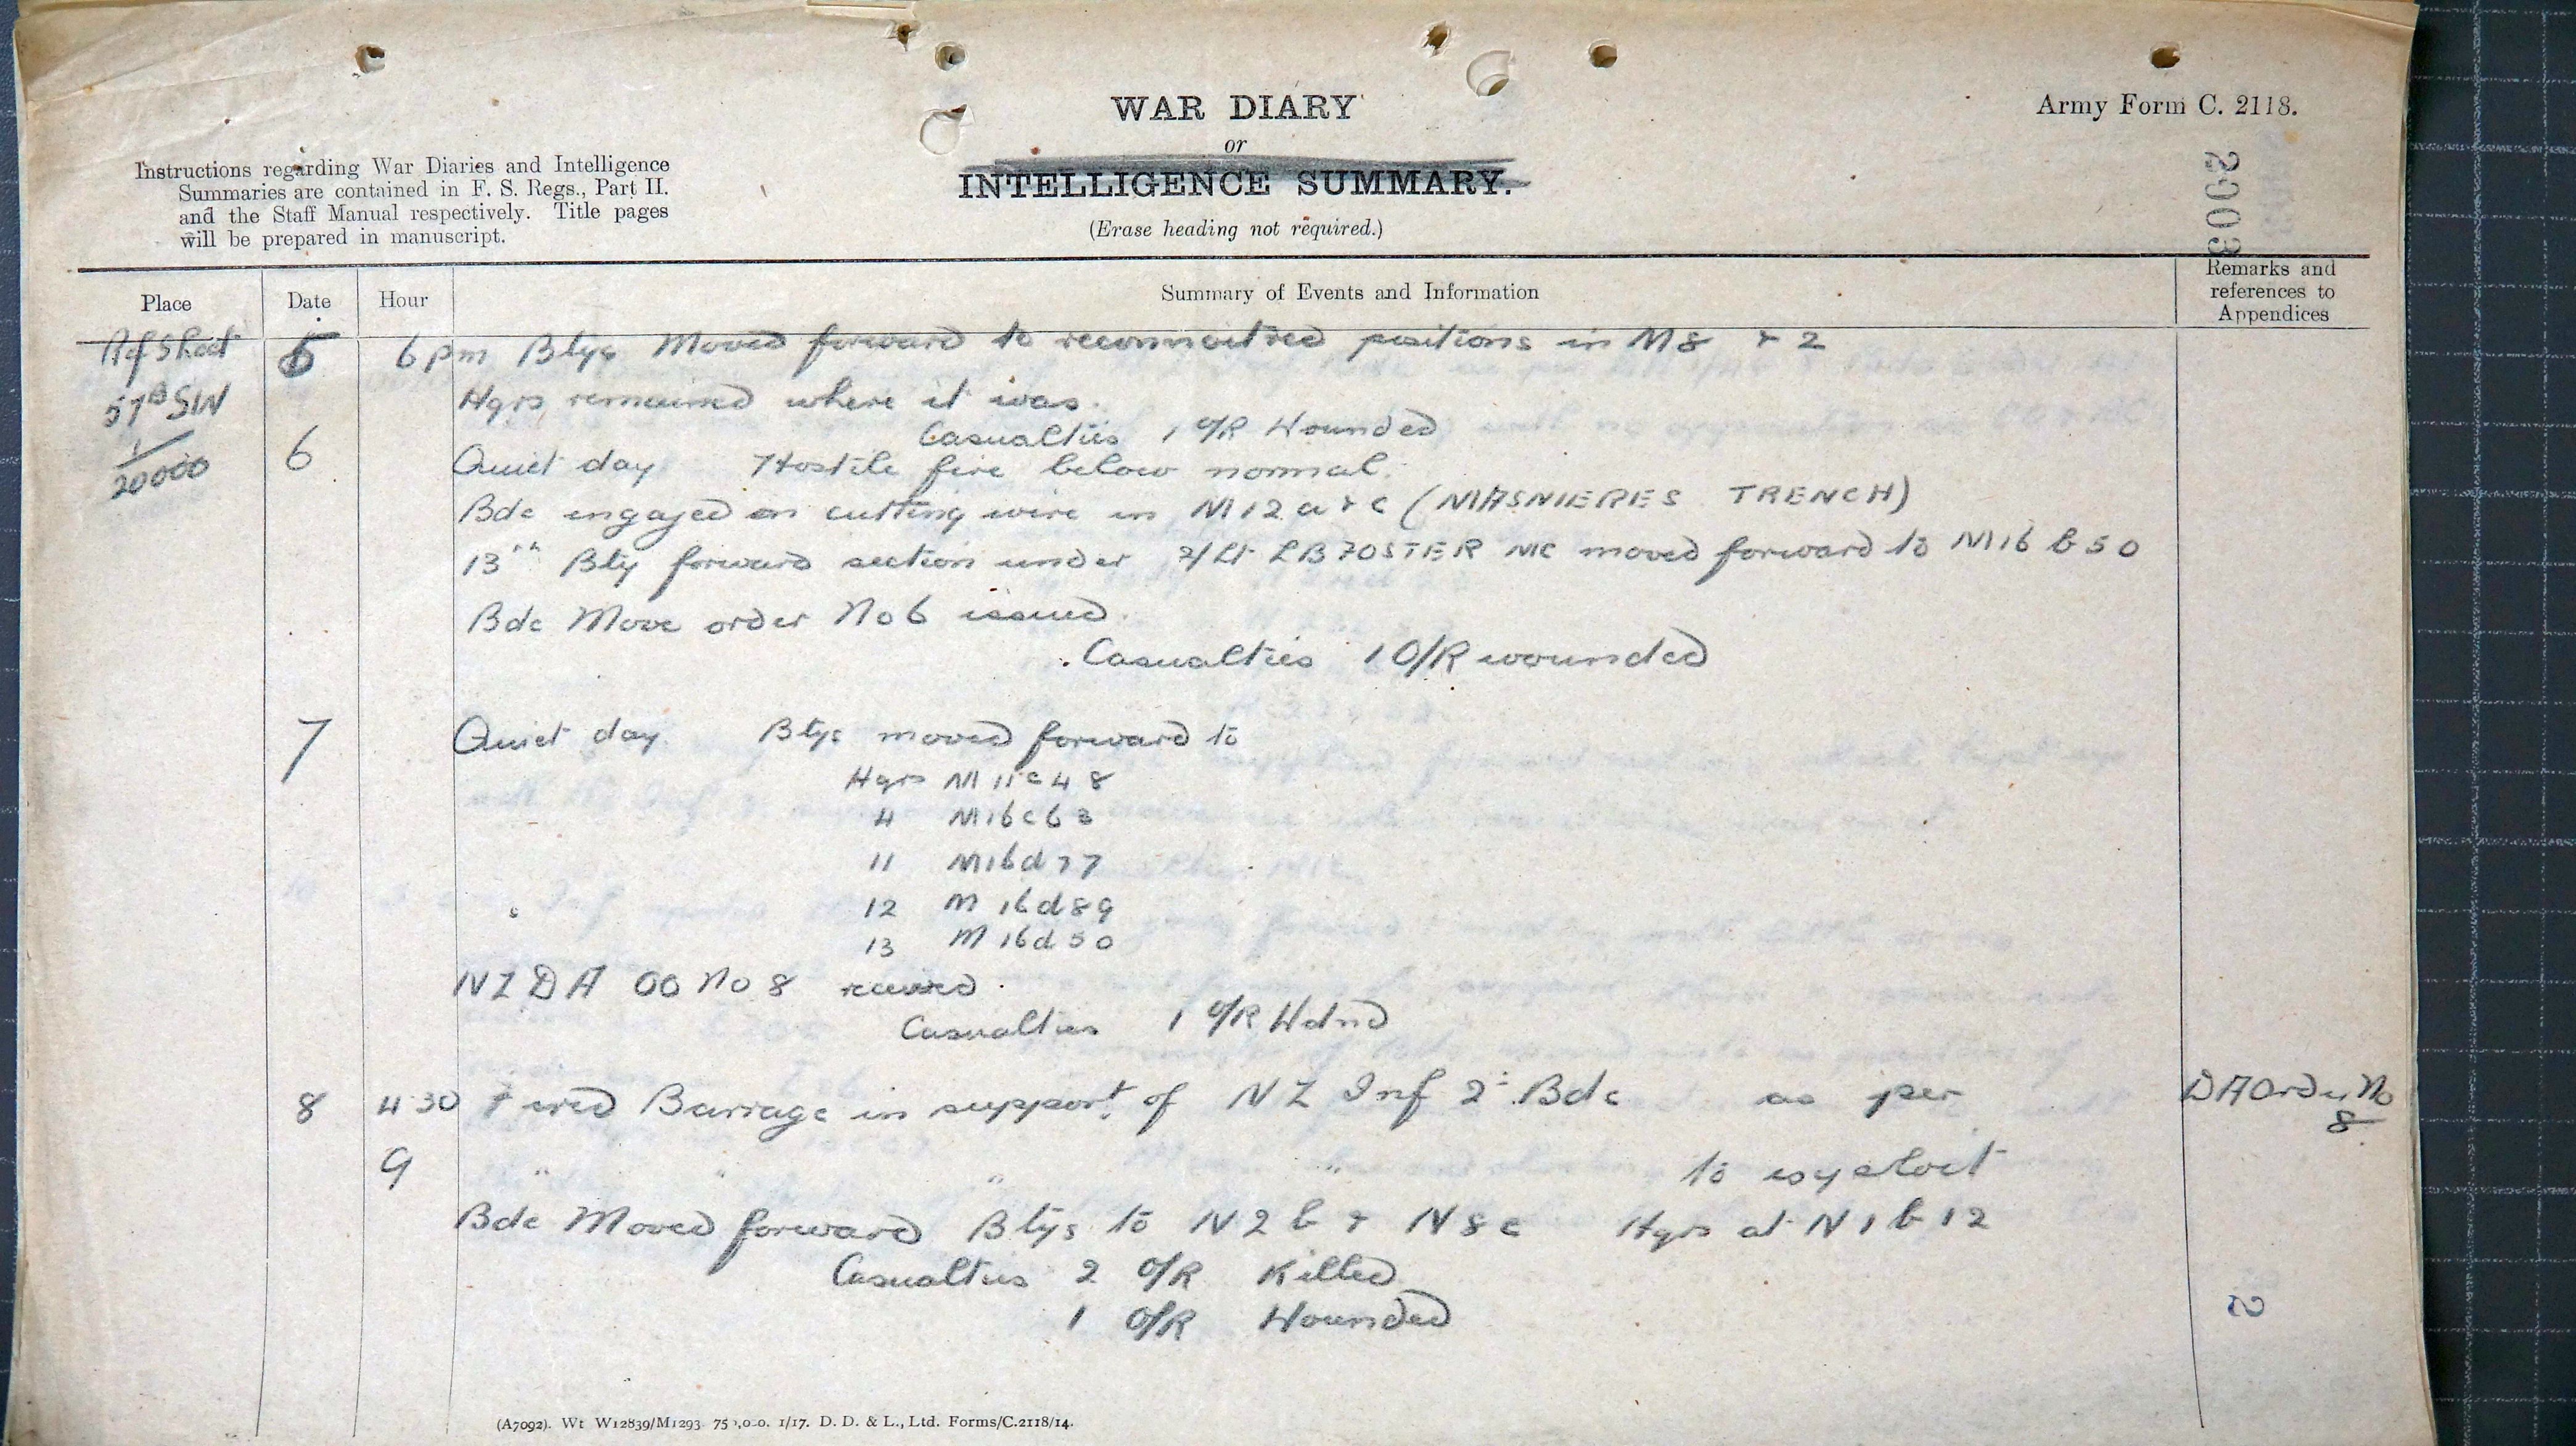 WAR DIARY
or
INTELLIGENCE SUMMARY.
(Erase heading not required.)
Army Form C. 2118.
2003
Instructions regarding War Diaries and Intelligence
Summaries are contained in F. S. Regs., Part II.
and the Staff Manual respectively. Title pages
will be prepared in manuscript.
Place Date Hour Summary of Events and Information Remarks and
references to
Appendices
Ref Sheet
57B SW
1/20000
5 6pm Btys Moved forward to reconnoitred positions in M8 & 2
Hqrs remained where it was.
Casualties 1 O/R Wounded
6 Quiet day Hostile fire below normal.
Bde engaged on cutting wire in M12 a & c (MASNIERES TRENCH)
13th Bty forward section under 2/Lt L B FOSTER MC moved forward to M16 b 50
Bde Move order No 6 issued.
Casualties 1 O/R wounded
7 Quiet day. Btys moved forward to
Hqrs M 11 c 4 8
4 M16 c 6 3
11 M16 d 77
12 M 16 d 89
13 M 16 d 50
NZDA OO No 8 received.
Casualties 1 O/R Wdnd
8 4 30 Fired Barrage in support of NZ Inf 2: Bde as per DA Order No
8
9 " " " " to
Bde Moved forward Btys to N2 b & N8c Hqrs at N1 b 12
Casualties 2 O/R Killed
1 O/R Wounded
2
(A7092). Wt W12839/M1293 75 ,0 0. 1/17. D. D. & L., Ltd. Forms/C.2118/14.